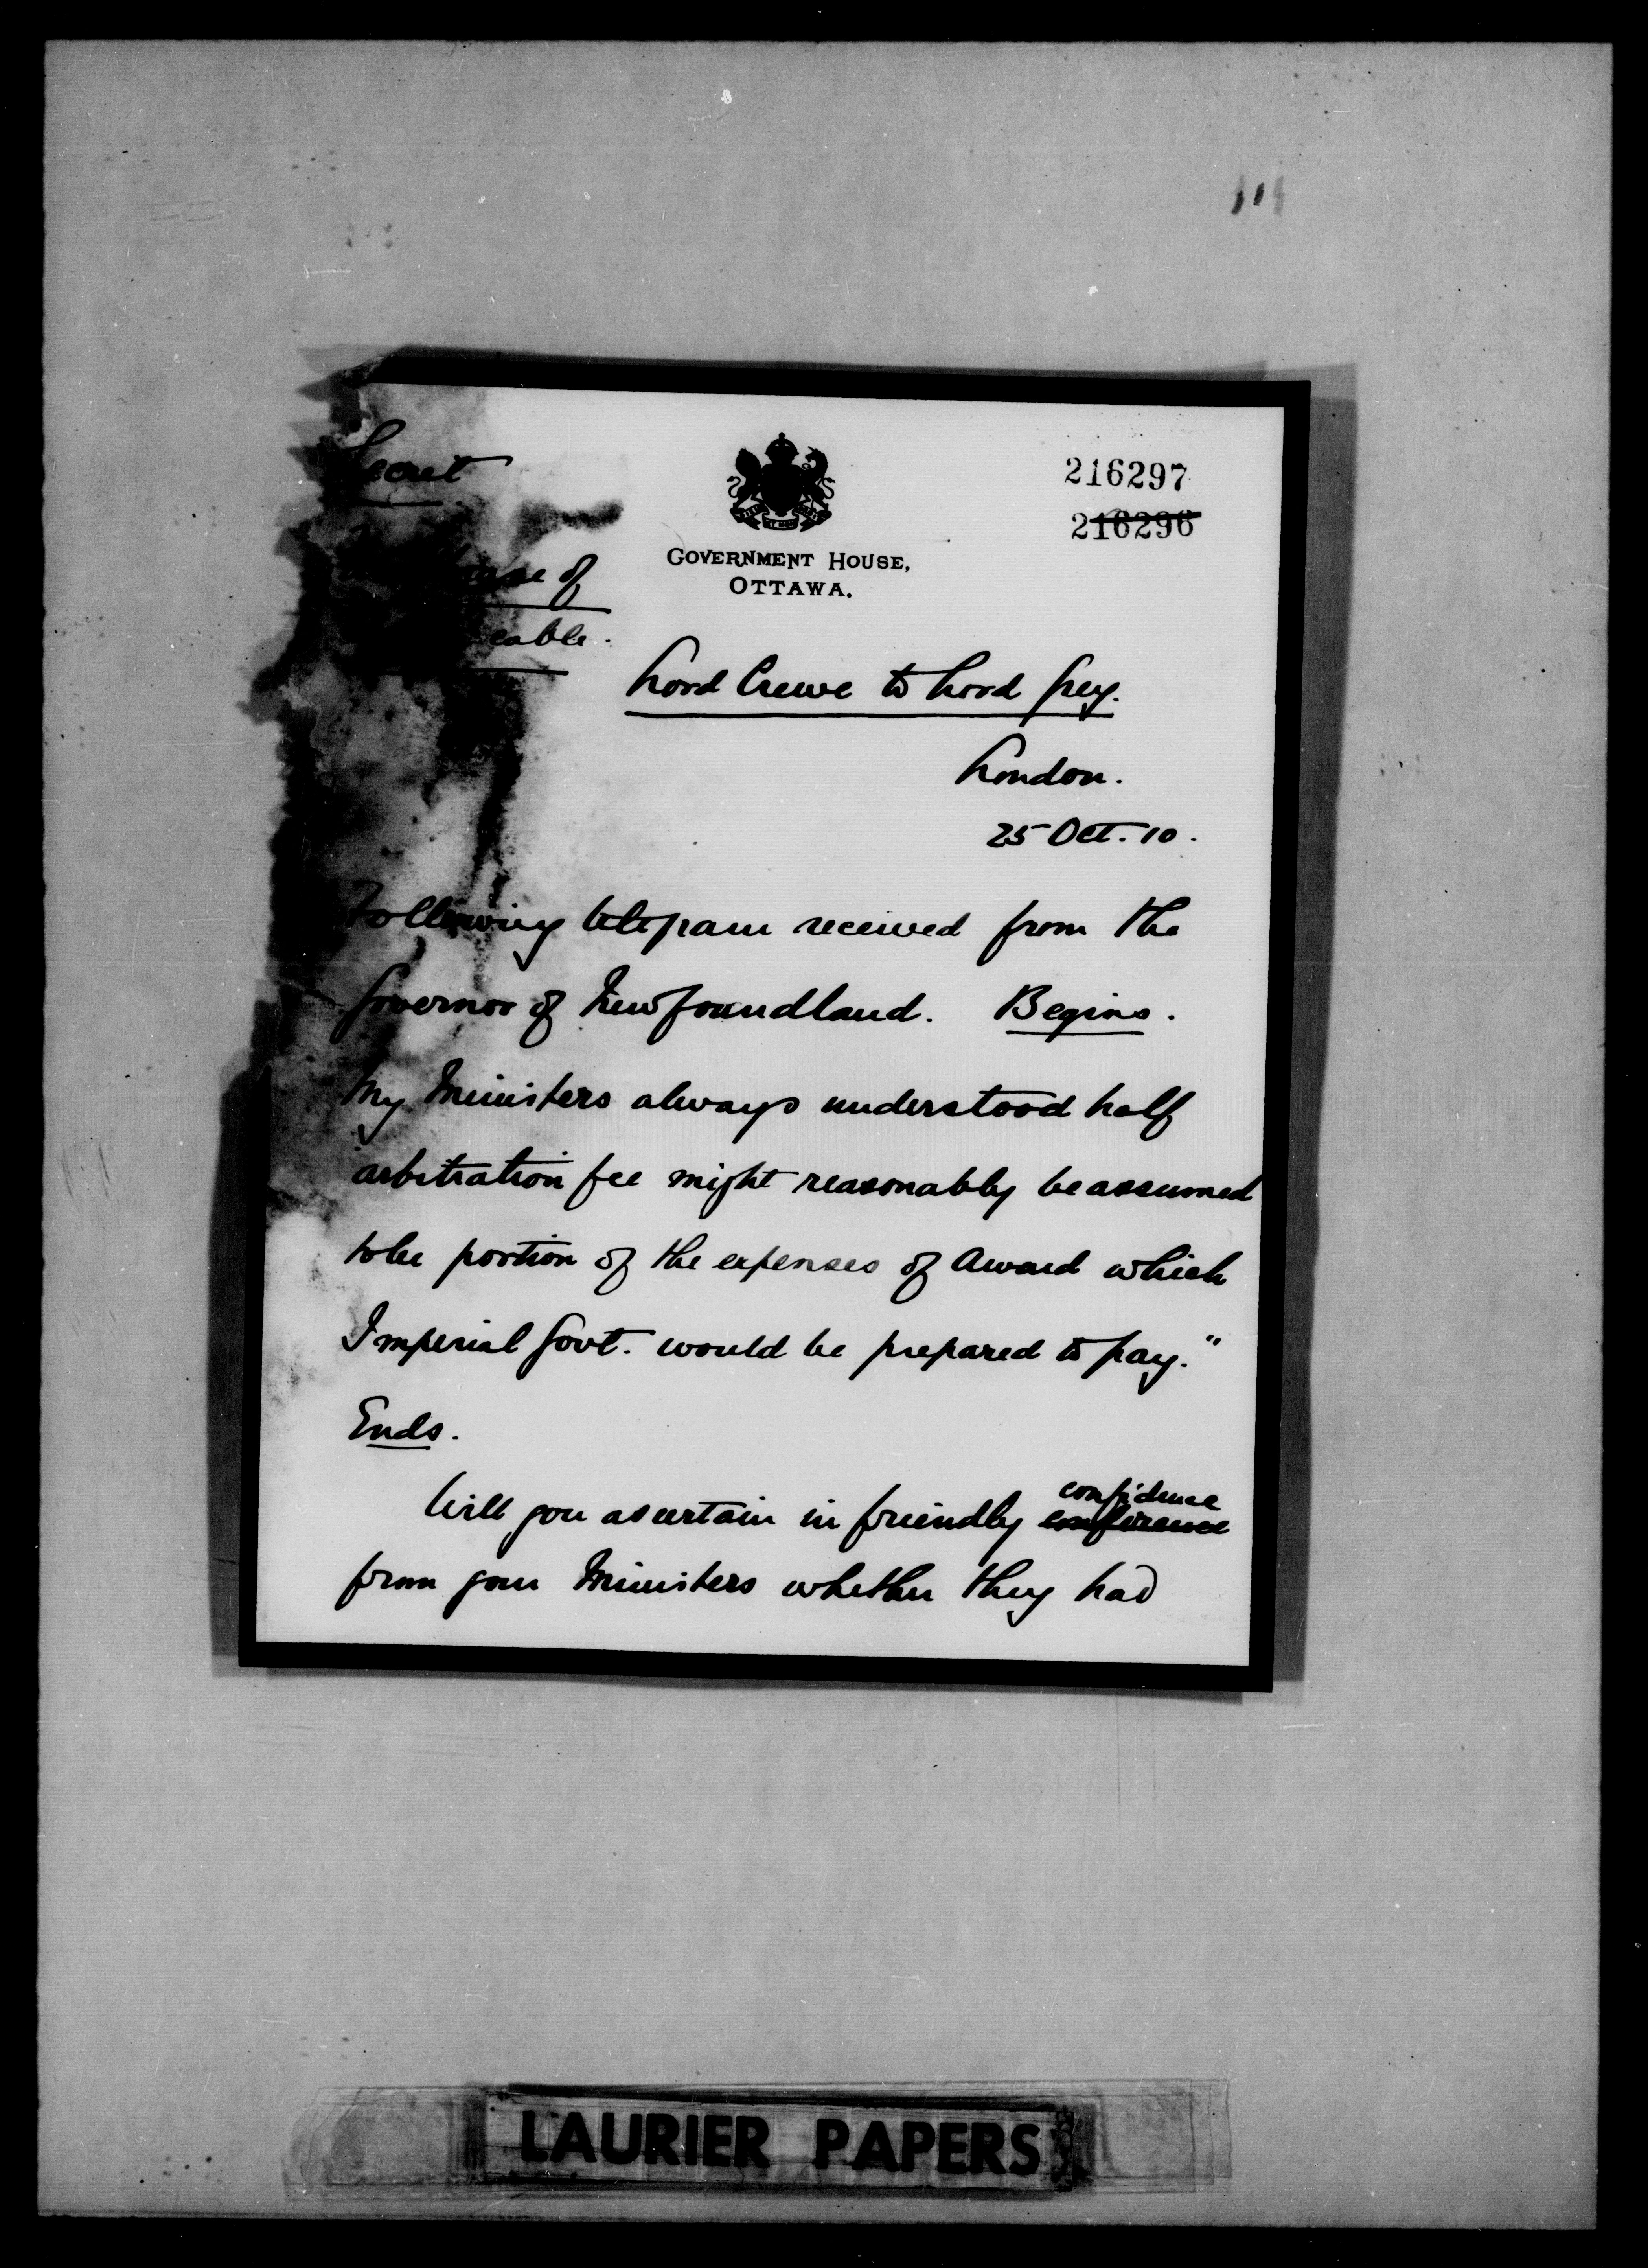 Secret
216297
216296
GOVERNMENT HOUSE,
OTTAWA.
of
cable.
Lord Crewe to Lord Grey.
London.
25 Oct. 10.
Following telegram received from the
Governor of Newfoundland. Begins.
My Ministers always understood half
arbitration fee might reasonably be assumed
to be portion of the expenses of Award which
Imperial Govt. would be prepared to pay."
Ends.
Will you ascertain in friendly conference confidence
from your Ministers whether they had
LAURIER PAPERS